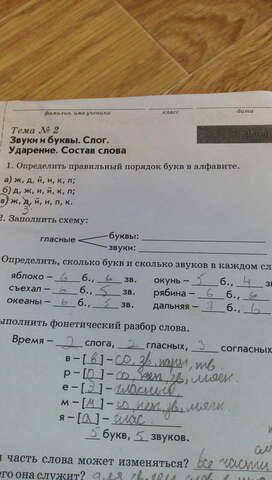 фамилия, имя ученика класс дата
Тема № 2
Звуки и буквы. Слог.
Ударение. Состав слова
1. Определить правильный порядок букв в алфавите.
а) ж, д, й, и, к, п;
б) д, ж, и, й, к, п;
в) ж, д, й, и, п, к.
2. Заполнить схему:
гласные буквы:
звуки:
Определить, сколько букв и сколько звуков в каждом сл
яблоко – 6 б., 6 зв. окунь – 5 б., 4 з
съехал – 6 б., 5 зв. рябина – 6 б., 6
океаны – 6 б., зв. дальняя – 7 б., 6
ыполнить фонетический разбор слова.
Время – 2 слога, 2 гласных, 3 согласных
в – [в] – со, зв, парн, тв.
р – со, зв, мягк.
е – гласный
м – [м] – со, неп, зв, мягк.
я – [а] – глас.
5 букв, 5 звуков.
я часть слова может изменяться? все части
его она служит? для